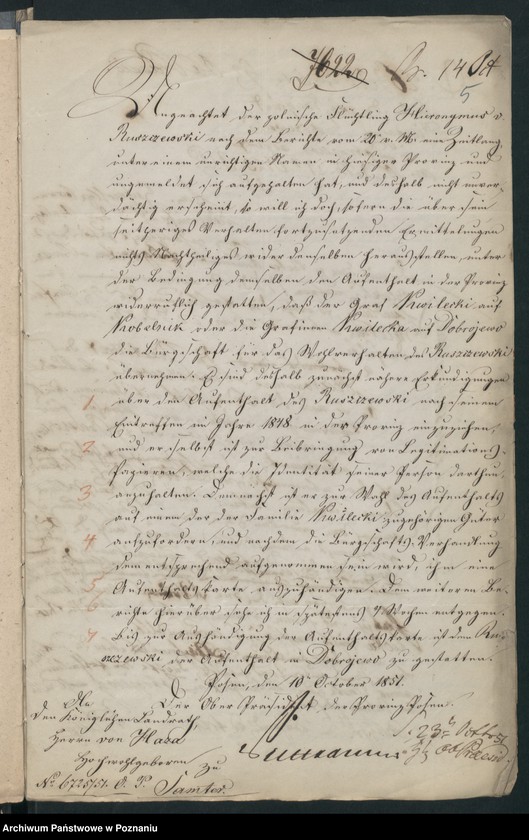 7622 Br. 14 Oct
5
Ungeachtet der polnische Flüchtling Hieronymus v.
Ruszczewski nach dem Berichte vom 20 v. M. eine Zeitlang
unter einem unrichtigen Namen in hiesiger Provinz und
ungemeldet sich aufgehalten hat, und deshalb nicht unver-
dächtig erscheint, so will ich doch, sofern die über sein
seitheriges Verhalten fortzusetzenden Ermittelungen
nichts Nachtheiliges wider denselben herausstellen, unter
der Bedingung demselben den Aufenthalt in der Provinz
widerruflich gestatten, daß der Graf Kwilecki auf
oder die Gräfinn Kwilecka auf Dobrojewo
die Bürgschaft für das Wohlverhalten des Ruszczewski
übernehmen. Es sind deshalb zunächst nähere Erkundigungen
1 über den Aufenthalt des Ruszczewski nach seinem
Eintreffen im Jahre 1848 in der Provinz einzuziehen,
2 und er selbst ist zur Beibringung von Legitimations-
papieren, welche die Identität seiner Person darthun,
3 anzuhalten. Demnächst ist er zur Wahl des Aufenthalts
auf einem der der Familie Kwilecki zugehörigen Güter
4 aufzufordern, und nachdem die Bürgschafts-Verhandlung
dem entsprechend aufgenommen sein wird, ihm eine
5 Aufenthaltskarte auszuhändigen. Dem weiteren Be-
6 richte hierüber sehe ich in spätestens 4 Wochen entgegen.
7 Bis zur Aushändigung der Aufenthaltskarte ist dem Rus-
szczewski der Aufenthalt in Dobrojewo zu gestatten.
Posen, den 10 October 1851.
Der Ober Präsident der Provinz Posen.
An
den Königlichen Landrath,
Herrn von Haza
Hochwohlgeboren
zu
Nº 6728/51. O. P. Samter.
Archiwum Państwowe w Poznaniu